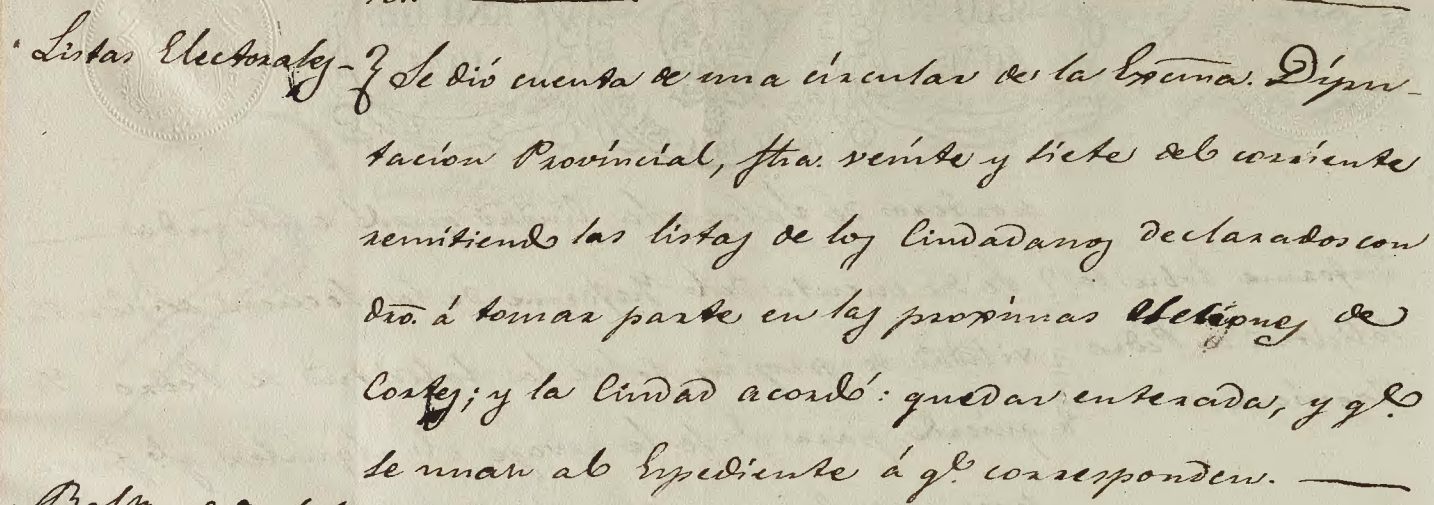 Listas Electorales- Se dió cuenta de una circular de la Excma. Dipu-
tacion Provincial, fha. veinte y siete del corriente
remitiendo las listas de los Ciudadanos declarados con
dro. á tomar parte en las proximas elecciones de
Cortes; y la Ciudad acordó: quedar enterada, y qe.
se unan al Expediente á qe. corresponden.